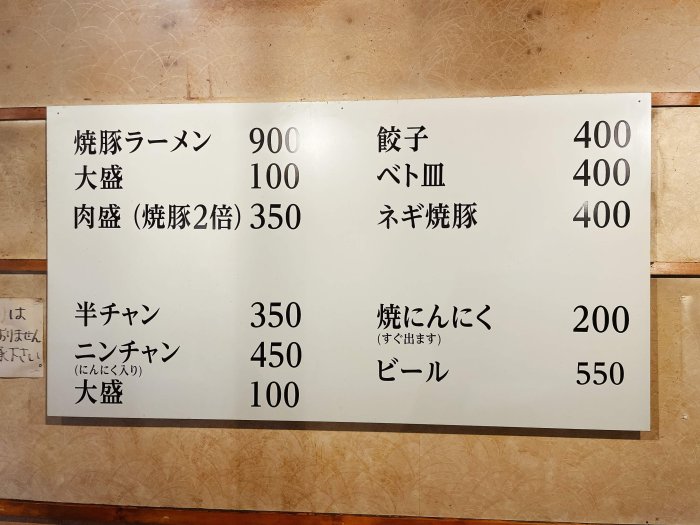 焼豚ラーメン 900
大盛 100
肉盛（焼豚2倍）350
半チャン 350
ニンチャン 450
(にんにく入り)
大盛 100
餃子 400
ベト皿 400
ネギ焼豚 400
焼にんにく 200
(すぐ出ます)
ビール 550
は
おりません
下さい。